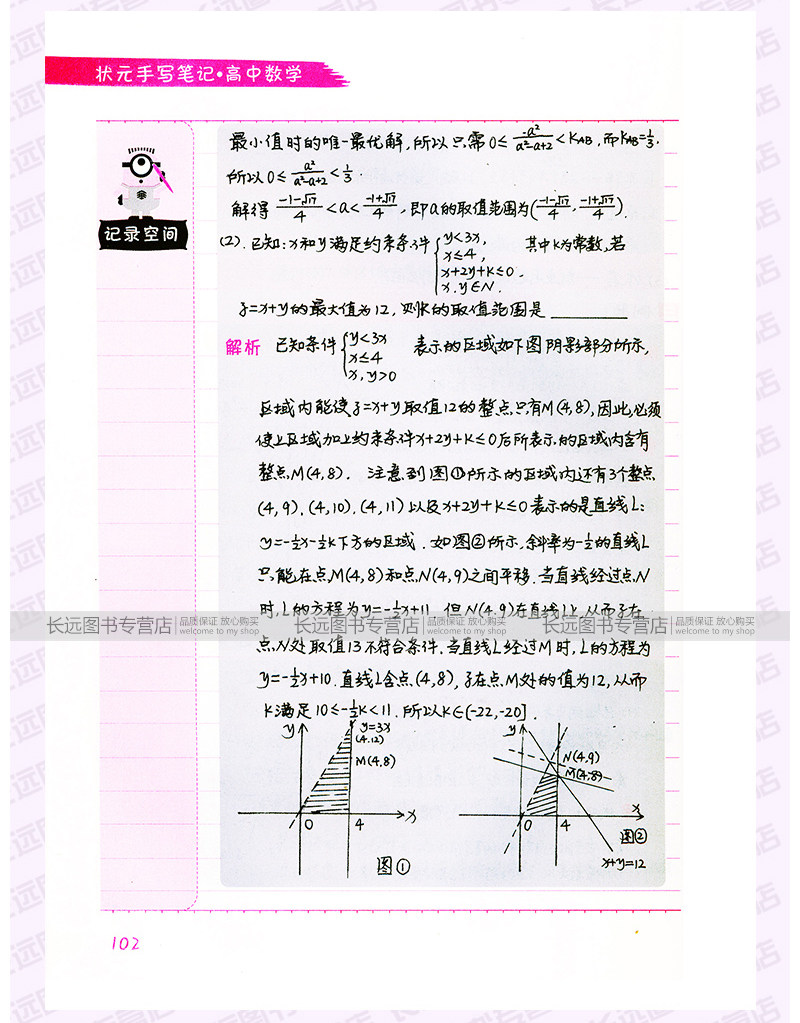 状元手写笔记•高中数学
记录空间
最小值时的唯一最优解,所以只需0≤-a²/(a²-a+2)<KAB,而KAB=1/3.
所以0≤a²/(a²-a+2)<1/3.
解得 (-1-√17)/4<a<(-1+√17)/4,即a的取值范围为((-1-√17)/4,(-1+√17)/4).
(2).已知:x和y满足约束条件{y<3x, 其中K为常数,若
x≤4,
x+2y+K≤0,
x.y∈N.
z=x+y的最大值为12,则K的取值范围是 ________
解析 已知条件{y<3x 表示的区域如下图阴影部分所示,
x≤4
x,y>0
区域内能使z=x+y取值12的整点只有M(4,8),因此,必须
使上区域加上约束条件x+2y+K≤0后所表示的区域内含有
整点M(4,8). 注意到图①所示的区域内还有3个整点
(4,9).(4,10).(4,11)以及x+2y+K≤0表示的是直线L:
y=-1/2x-1/2K下方的区域.如图②所示,斜率为-1/2的直线L
只能在点M(4,8)和点N(4,9)之间平移.当直线经过点N
时,L的方程为y=-1/2x+11.但N(4.9)在直线L上,从而z在
点N处取值13不符合条件.当直线L经过M时,L的方程为
y=-1/2x+10.直线L含点(4,8),z在点M处的值为12,从而
K满足10≤-1/2K<11.所以K∈(-22,-20].
y
y=3x
(4.12)
M(4.8)
0
4
x
图①
y
N(4.9)
M(4,8)
x
0
4
图②
x+y=12
长远图书专营店 品质保证 放心购买 welcome to my shop
长远图书专营店 品质保证 放心购买 welcome to my shop
长远图书专营店 品质保证 放心购买 welcome to my shop
102